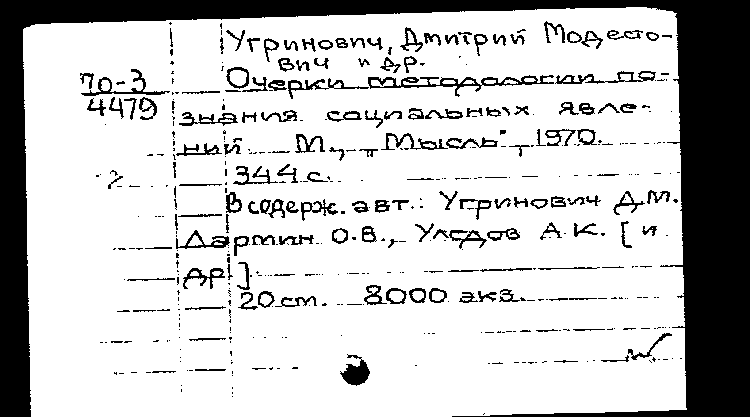 Угринович, Дмитрий Модесто-
вич и др.
70-3
4479
Очерки методологии по-
знания социальных явле-
ний М., „Мысль", 1970.
344 с.
В содерж. авт.: Угринович Д.М.
Лармин О.В., Уледов А.К. [и
др]
20 ст. 8000 экз.